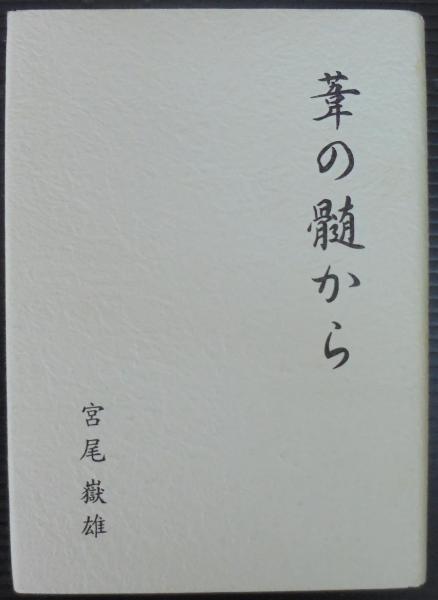 葦の髄から
宮尾嶽雄